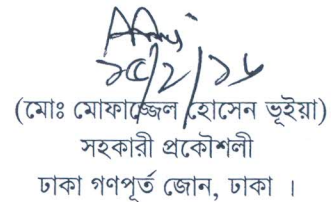 ১৫/২/১৬
(মোঃ মোফাজ্জেল হোসেন ভূইয়া)
সহকারী প্রকৌশলী
ঢাকা গণপূর্ত জোন, ঢাকা ।